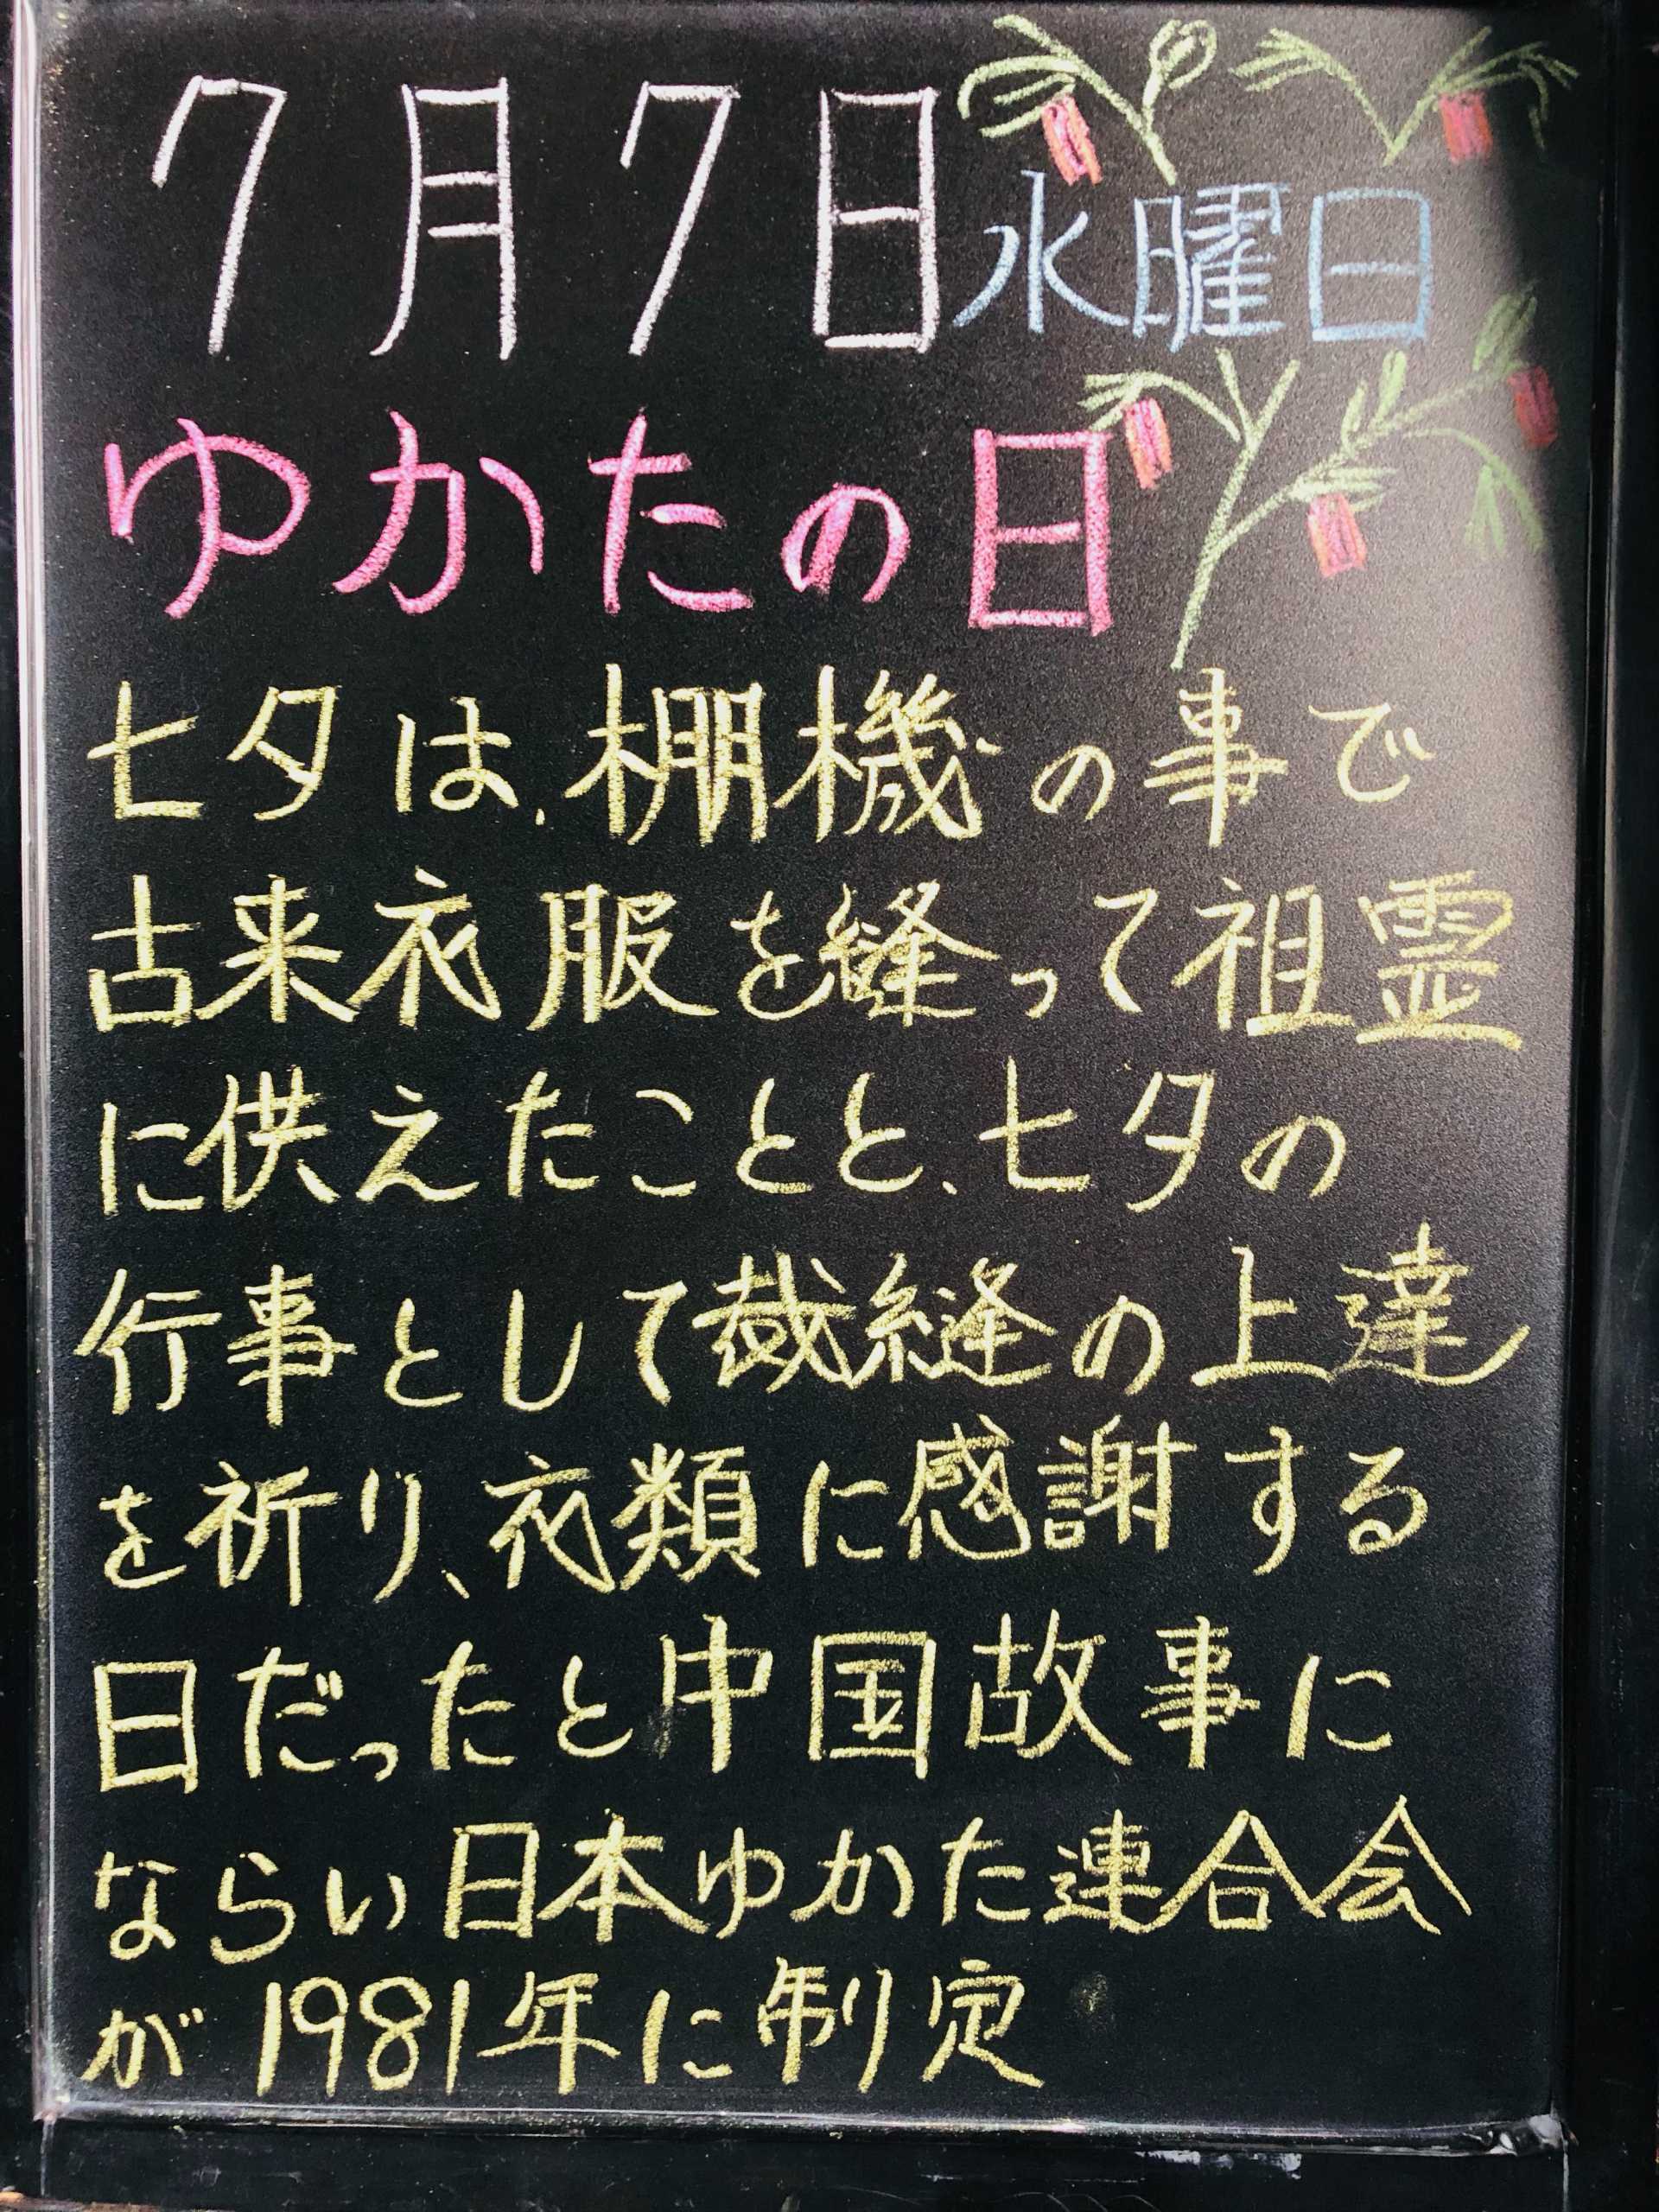 7月7日水曜日
ゆかたの日
七夕は、棚機の事で
古来衣服を縫って祖霊
に供えたことと、七夕の
行事として裁縫の上達
を祈り、衣類に感謝する
日だったと中国故事に
ならい日本ゆかた連合会
が1981年に制定